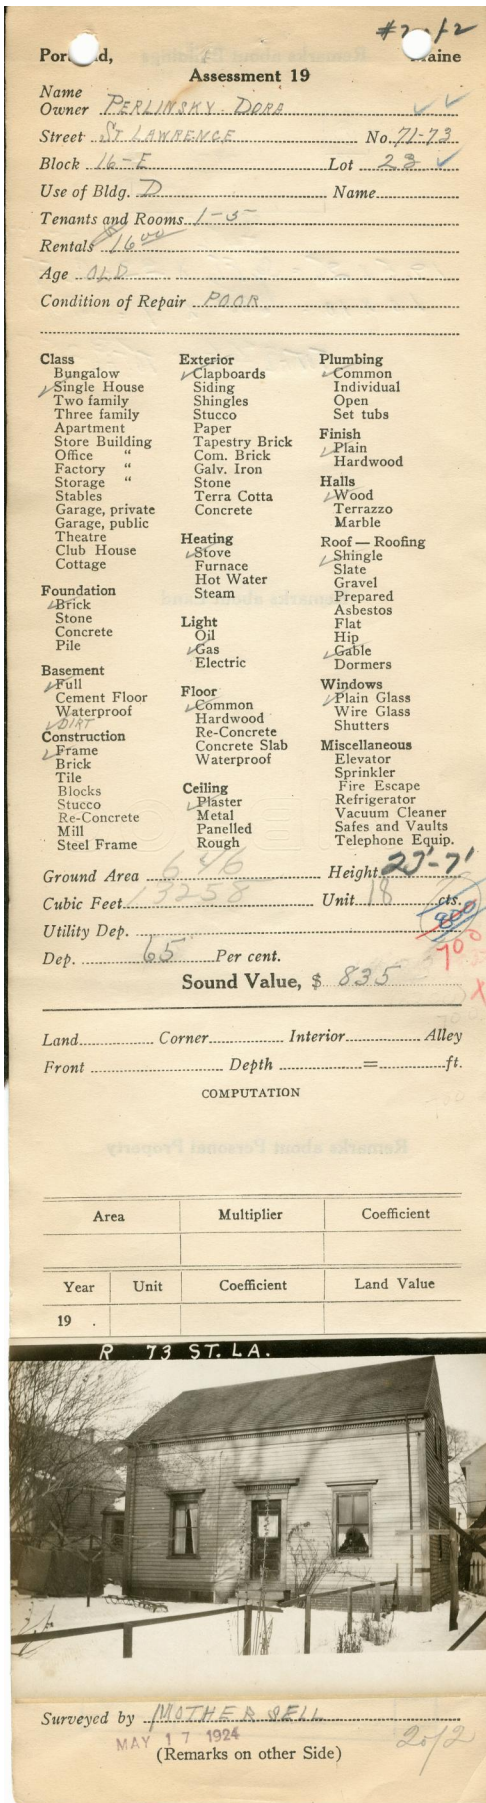 #2 of 2
Portland, Maine
Assessment 19
Name
Owner PERLINSKY - DORA
Street ST LAWRENCE No. 71-73
Block 16-E Lot 23
Use of Bldg. D Name
Tenants and Rooms 1-5
Rentals $16 00
Age OLD
Condition of Repair POOR
Class
Bungalow
Single House
Two family
Three family
Apartment
Store Building
Office "
Factory "
Storage "
Stables
Garage, private
Garage, public
Theatre
Club House
Cottage
Foundation
Brick
Stone
Concrete
Pile
Basement
Full
Cement Floor
Waterproof
DIRT
Construction
Frame
Brick
Tile
Blocks
Stucco
Re-Concrete
Mill
Steel Frame
Exterior
Clapboards
Siding
Shingles
Stucco
Paper
Tapestry Brick
Com. Brick
Galv. Iron
Stone
Terra Cotta
Concrete
Heating
Stove
Furnace
Hot Water
Steam
Light
Oil
Gas
Electric
Floor
Common
Hardwood
Re-Concrete
Concrete Slab
Waterproof
Ceiling
Plaster
Metal
Panelled
Rough
Plumbing
Common
Individual
Open
Set tubs
Finish
Plain
Hardwood
Halls
Wood
Terrazzo
Marble
Roof — Roofing
Shingle
Slate
Gravel
Prepared
Asbestos
Flat
Hip
Gable
Dormers
Windows
Plain Glass
Wire Glass
Shutters
Miscellaneous
Elevator
Sprinkler
Fire Escape
Refrigerator
Vacuum Cleaner
Safes and Vaults
Telephone Equip.
Ground Area 646 Height 23'-7'
Cubic Feet 13258 Unit 18 cts.
800
Utility Dep.
700
Dep. 65 Per cent.
Sound Value, $ 835
Land Corner Interior Alley
Front Depth = ft.
COMPUTATION
Area Multiplier Coefficient
Year Unit Coefficient Land Value
19 .
R 73 ST. LA.
Surveyed by MOTHERSELL
MAY 17 1924
(Remarks on other Side)
2 of 2